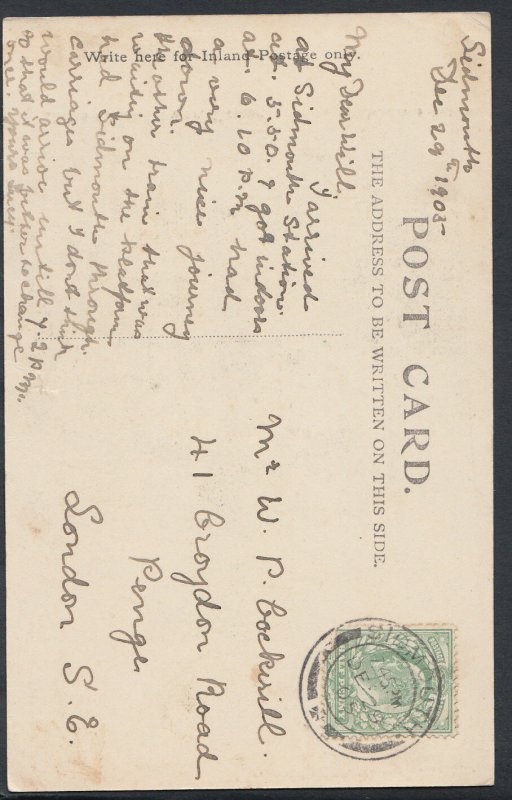 Sidmouth
Dec 29th 1905
POST CARD.
THE ADDRESS TO BE WRITTEN ON THIS SIDE.
Write here for Inland Postage only.
My Dear Will.
I arrived
at Sidmouth Station
at. 5.50. & got indoors
at. 6.10 p.m. had
a very nice journey
down.
the other train that was
waiting on the platform
had Sidmouth through
carriages but I dont think
would arrive untill 7.2 p.m.
so that it was better to change
once yours Lucy
Mr W. P. Cockerill.
41 Croydon Road
Penge.
London S.E.
SIDMOUTH
45 PM
DE 29
05